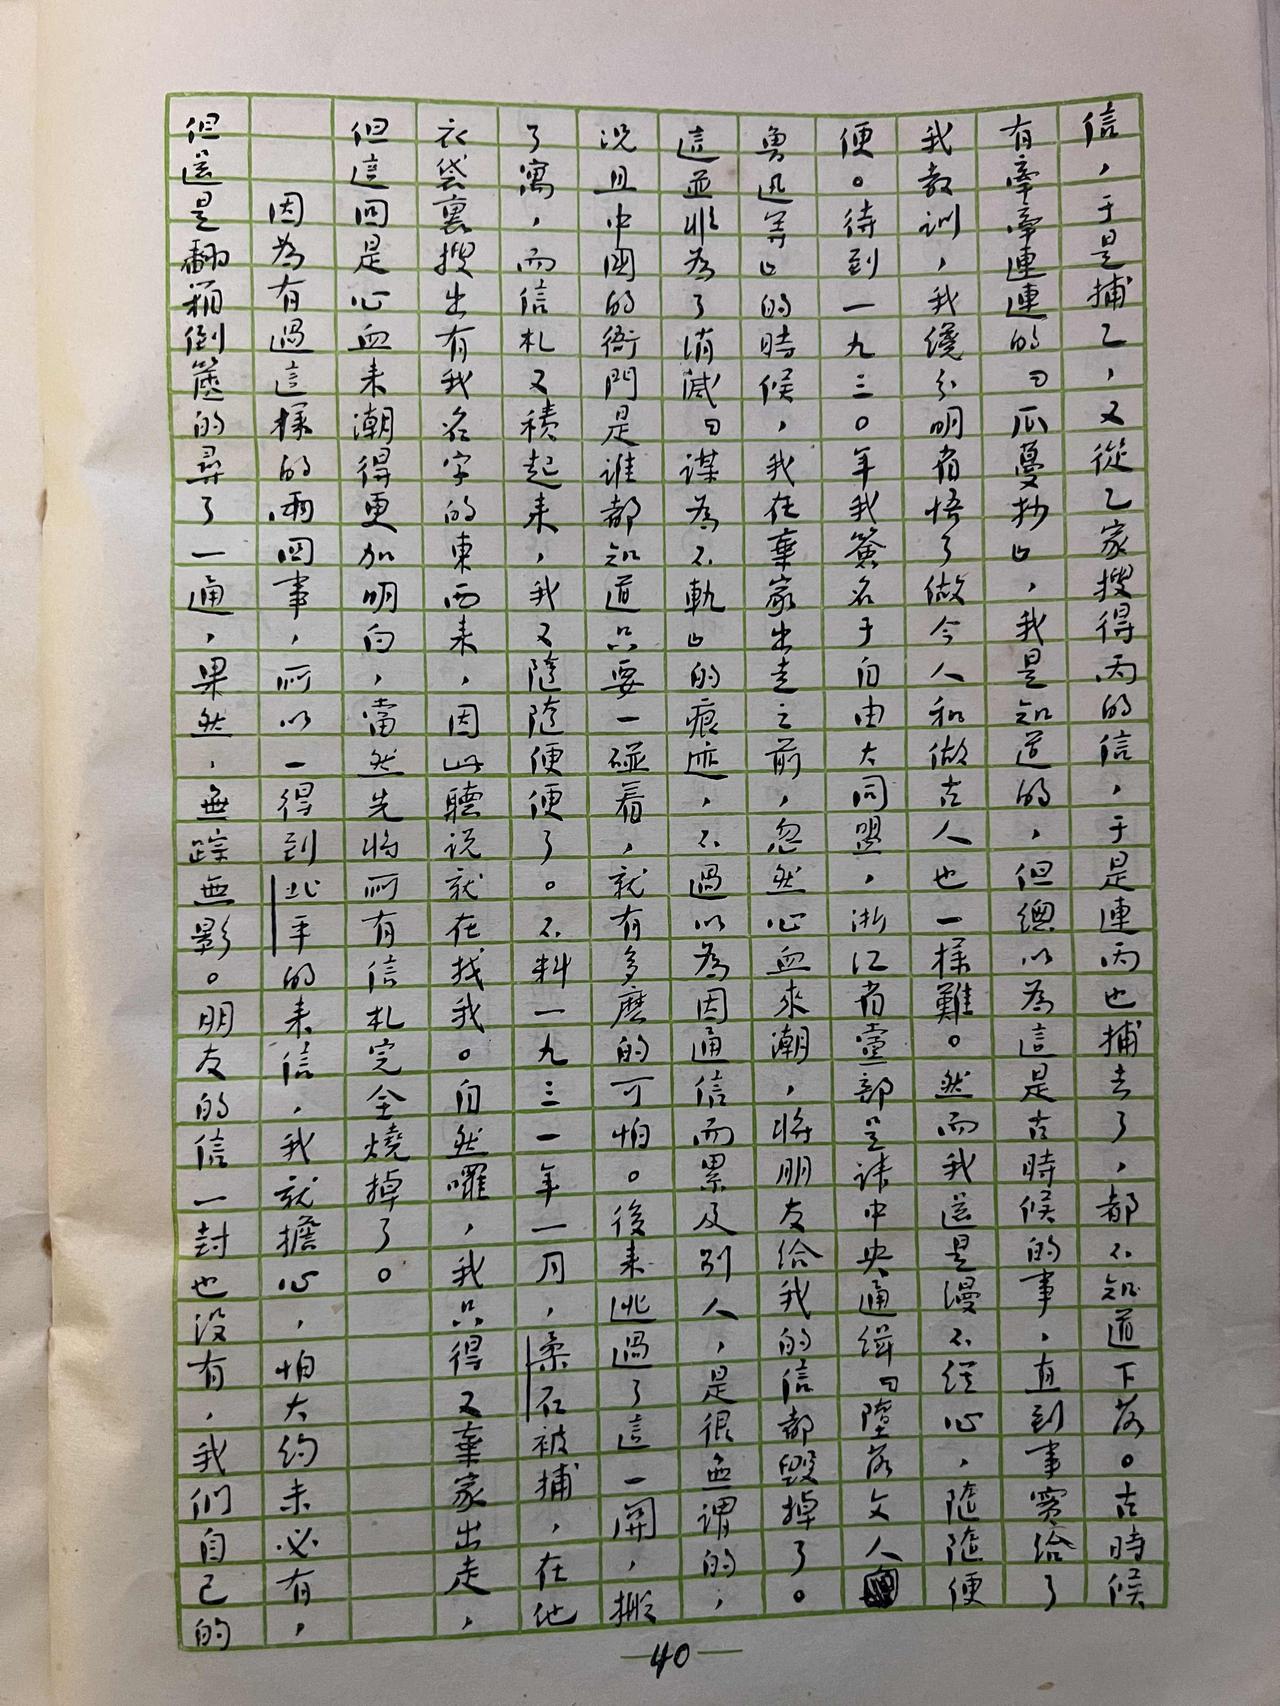 信，于是捕乙，又從乙家搜得丙的信，于是連丙也捕去了，都不知道下落。古時候
有牽牽連連的「瓜蔓抄」，我是知道的，但總以為這是古時候的事，直到事實給了
我教訓，我纔分明省悟了做今人和做古人也一樣難。然而我還是漫不經心，隨隨便
便。待到一九三〇年我簽名于自由大同盟，浙江省黨部呈請中央通緝「墮落文人
魯迅等」的時候，我在棄家出走之前，忽然心血來潮，將朋友給我的信都毀掉了。
這並非為了消滅「謀為不軌」的痕迹，不過以為因通信而累及別人，是很無謂的，
況且中國的衙門是誰都知道只要一碰着，就有多麼的可怕。後来逃過了這一関，搬
了寓，而信札又積起来，我又隨隨便便了。不料一九三一年一月，柔石被捕，在他
衣袋裏搜出有我名字的東西来，因此聽说就在找我。自然囉，我只得又棄家出走，
但這回是心血来潮得更加明白，當然先將所有信札完全燒掉了。
因為有過這樣的兩回事，所以一得到北平的来信，我就擔心，怕大約未必有，
但還是翻箱倒篋的尋了一通，果然，無踪無影。朋友的信一封也没有，我們自己的
40